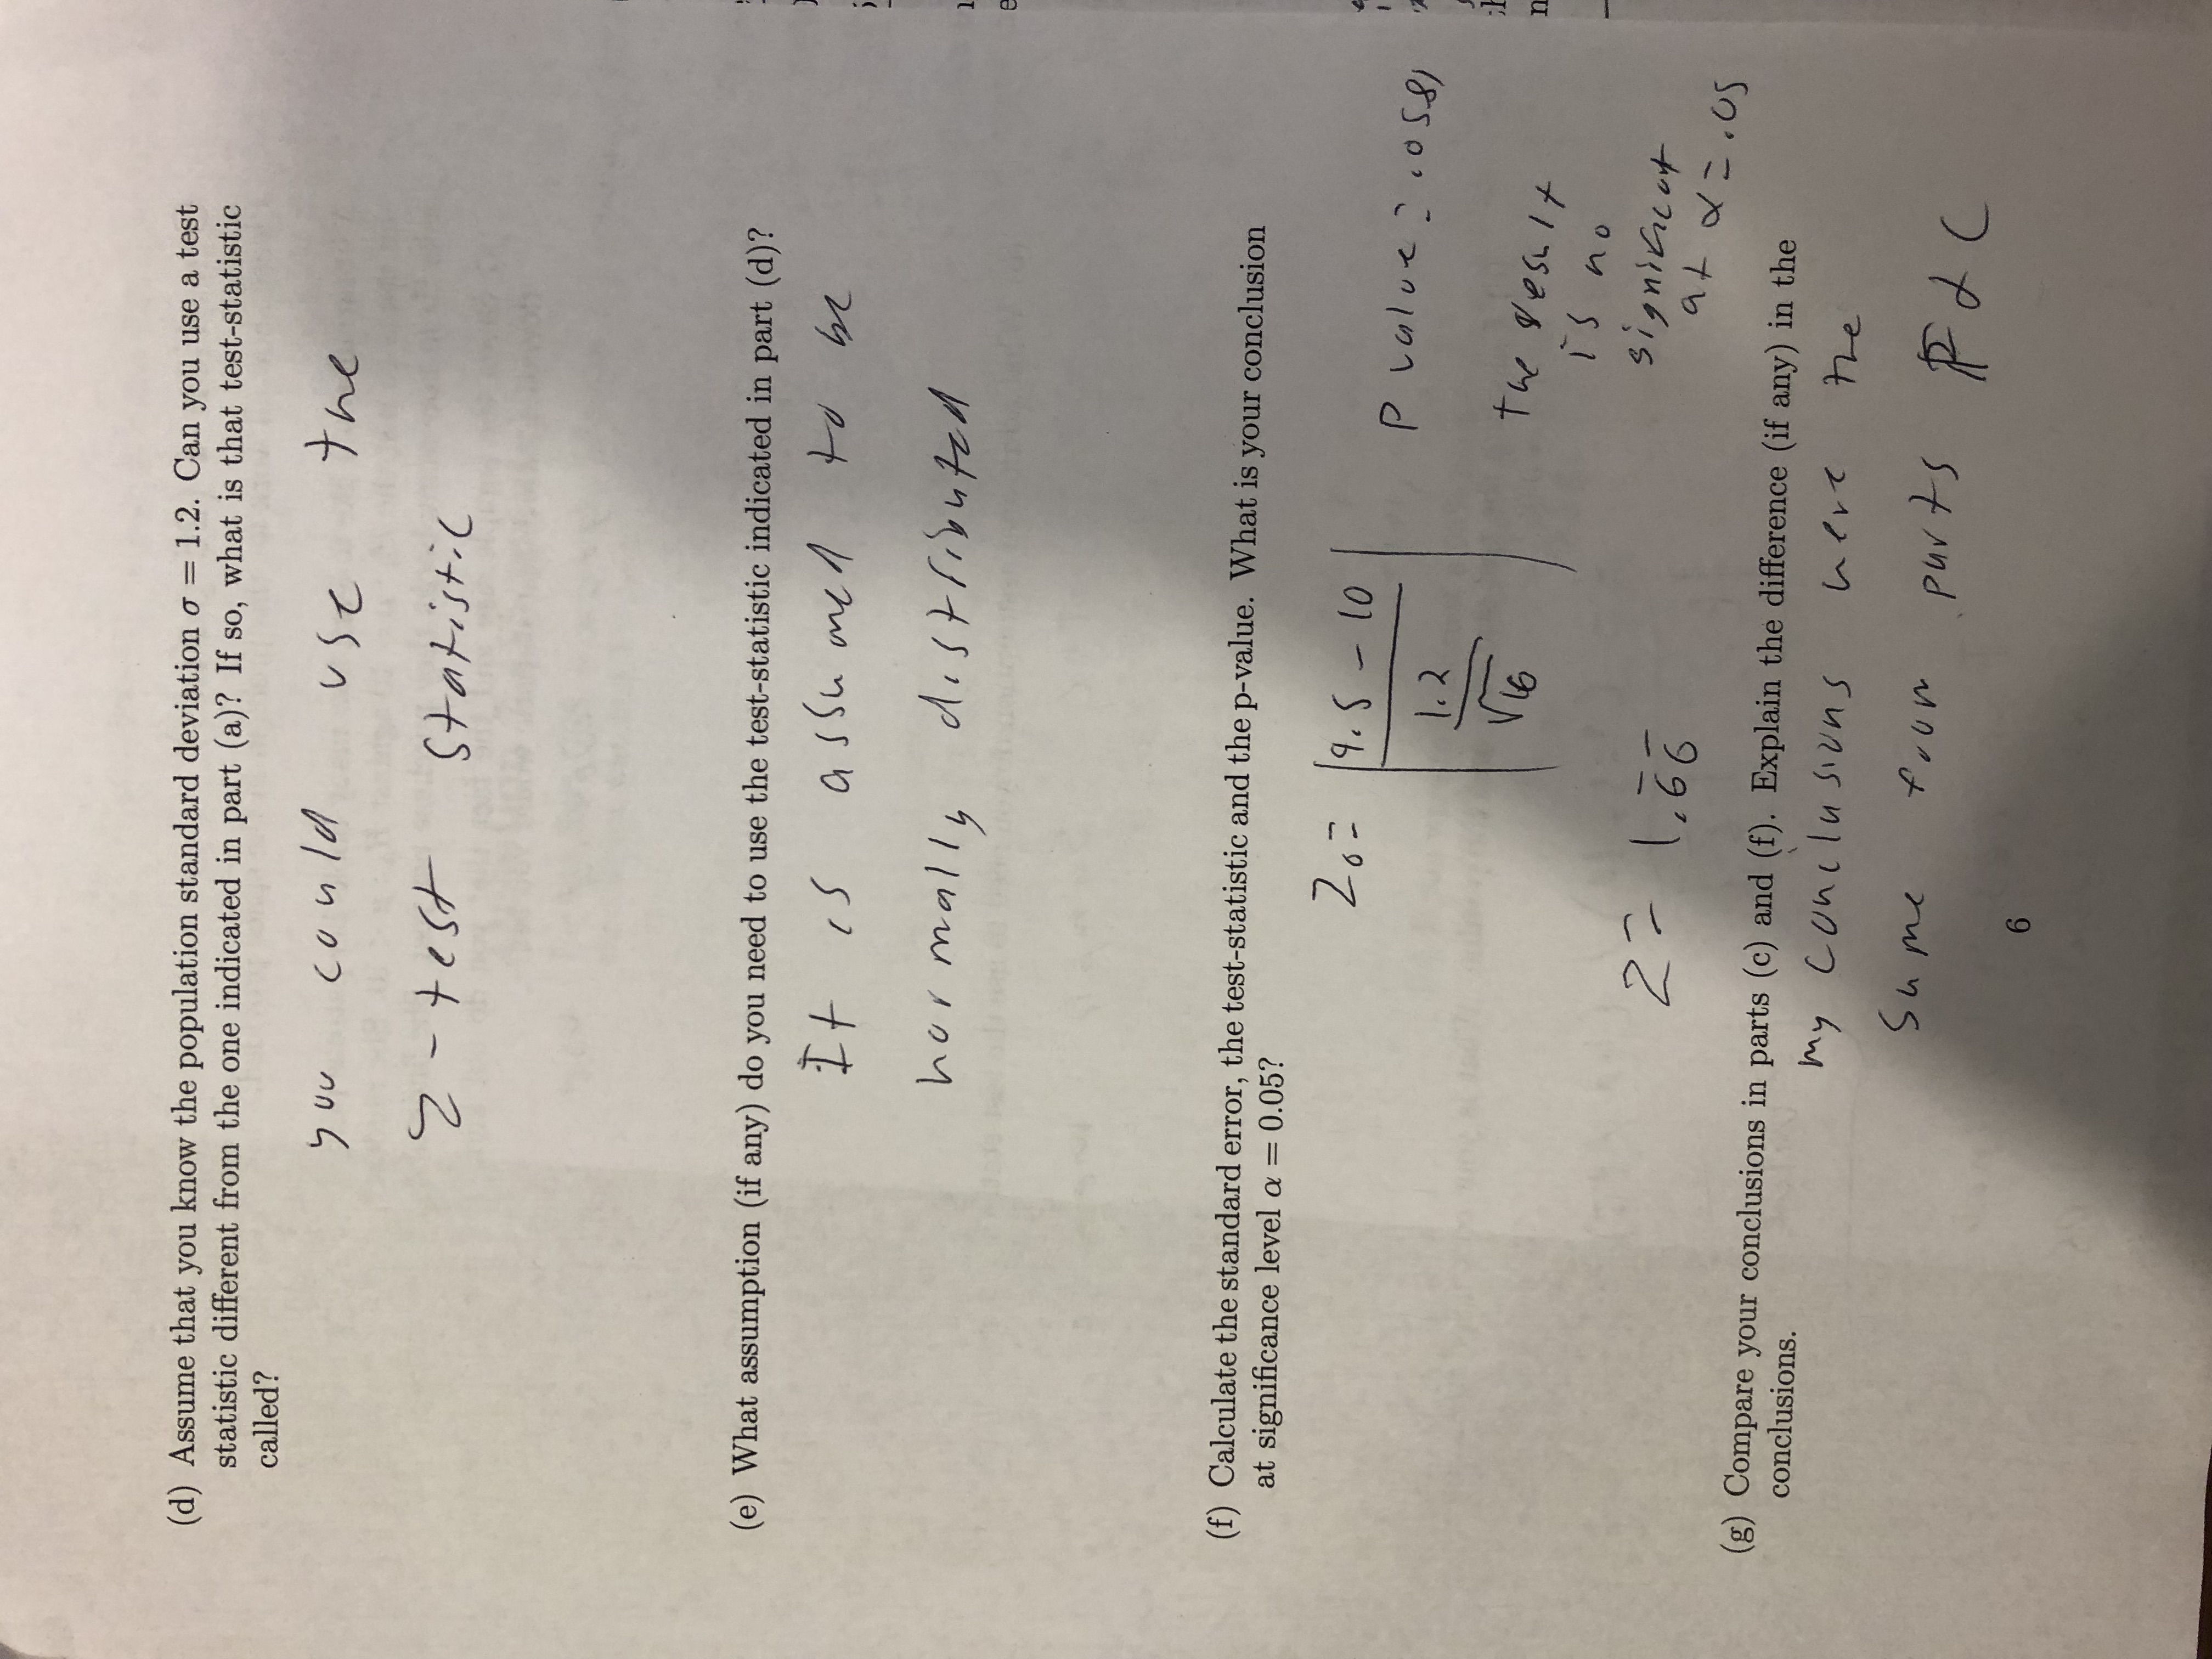 (d) Assume that you know the population standard deviation σ = 1.2. Can you use a test
statistic different from the one indicated in part (a)? If so, what is that test-statistic
called?
you could use the
Z-test statistic
(e) What assumption (if any) do you need to use the test-statistic indicated in part (d)?
It is assumed to be
normally distributed
(f) Calculate the standard error, the test-statistic and the p-value. What is your conclusion
at significance level α = 0.05?
Z₀ = |9.5 - 10 / 1.2/√16|
Z = 1.66
P value = .0581
the result
is no
significant
at α = .05
(g) Compare your conclusions in parts (c) and (f). Explain the difference (if any) in the
conclusions.
my conclusions were the
same from parts
6